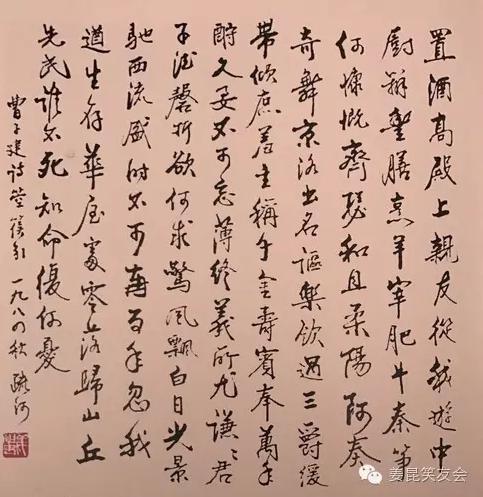 置酒高殿上親友從我遊中
廚辦豐膳烹羊宰肥牛秦箏
何慷慨齊瑟和且柔陽阿奏
奇舞京洛出名謳樂飲過三爵緩
帶傾庶羞主稱千金壽賓奉萬年
酬久要不可忘薄終義所尤謙〻君
子德磬折欲何求驚風飄白日光景
馳西流盛時不可再百年忽我
遒生存華屋處零落歸山丘
先民誰不死知命復何憂
曹子建詩箜篌引 一九八〇秋
姜昆笑友会